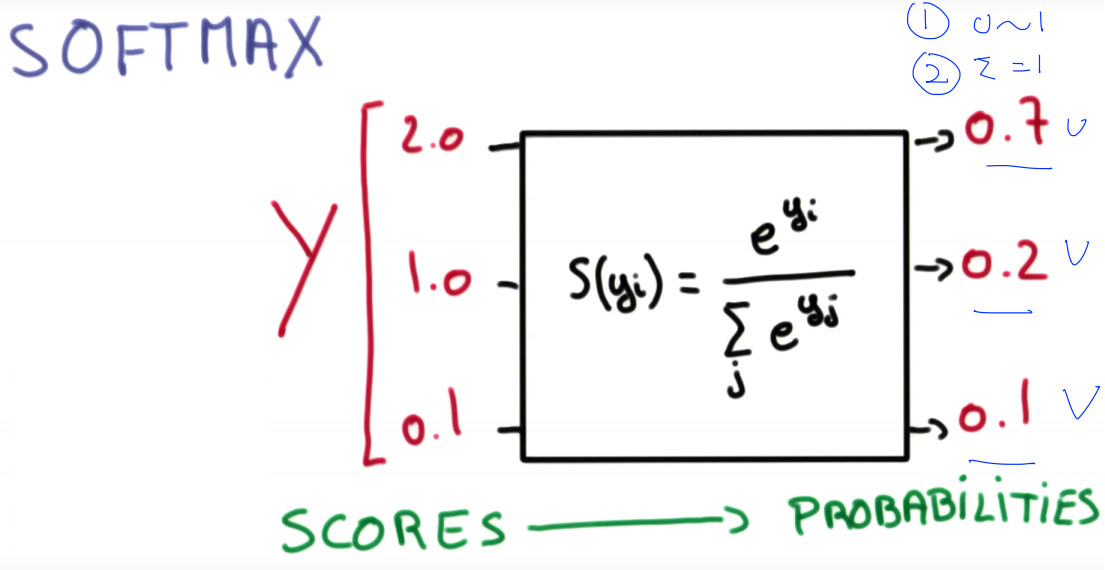 SOFTMAX
① 0~1
② Σ=1
Y [ 2.0 → 0.7 ∨
1.0 → 0.2 ∨
S(yᵢ) = e^{yᵢ} / Σⱼ e^{yⱼ}
0.1 → 0.1 ∨
SCORES → PROBABiLiTiES